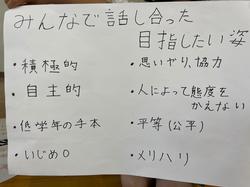 みんなで話し合った
目指したい姿
・積極的
・自主的
・低学年の手本
・いじめ0
・思いやり、協力
・人によって態度を
かえない
・平等(公平)
・メリハリ